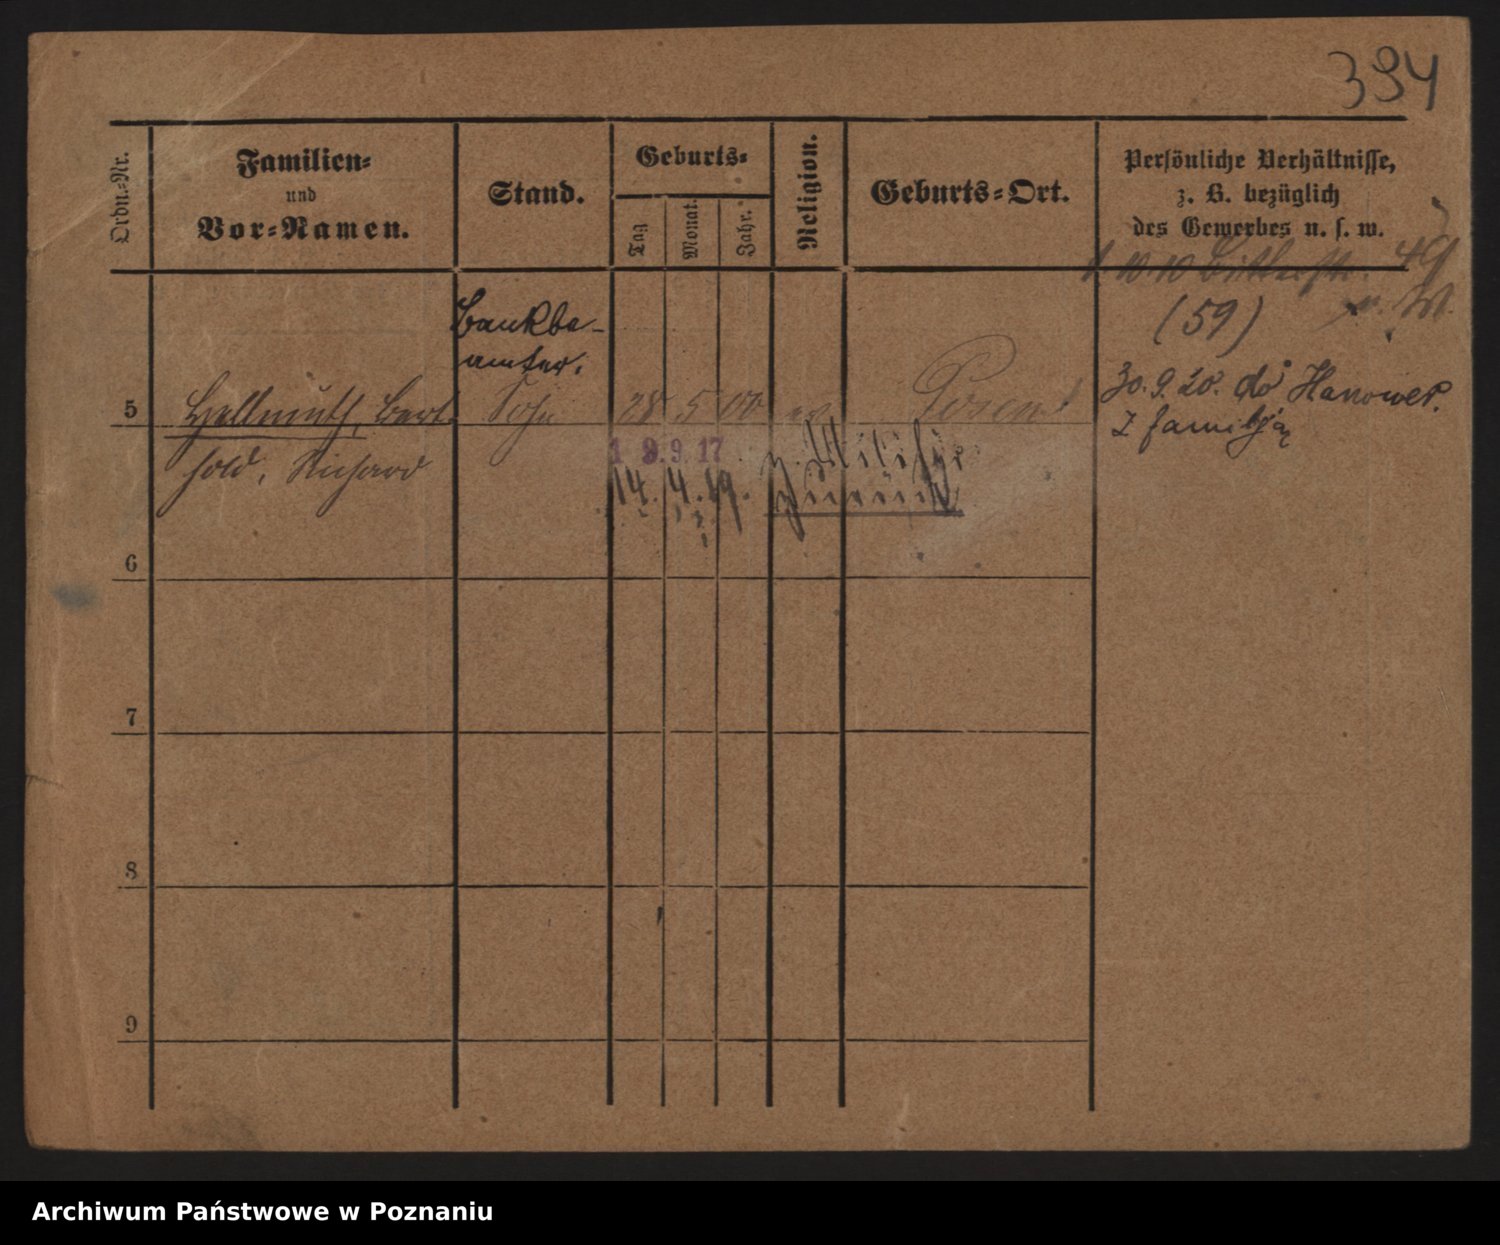 394
Ordn.-Nr.
Familien-
und
Vor-Namen.
Stand.
Geburts-
Tag
Monat.
Jahr.
Religion.
Geburts-Ort.
Persönliche Verhältnisse,
z. B. bezüglich
des Gewerbes u. s. w.
10 10 49
(59)
Bankbe-
amter.
30. 9. 20. do Hanower.
z familją
5 Hellmuth, Bert- Sohn 28 5 00 ev Posen
hold, Richard
19.9.17 z. Militär
14. 4. 19. zurück
6
7
8
9
Archiwum Państwowe w Poznaniu